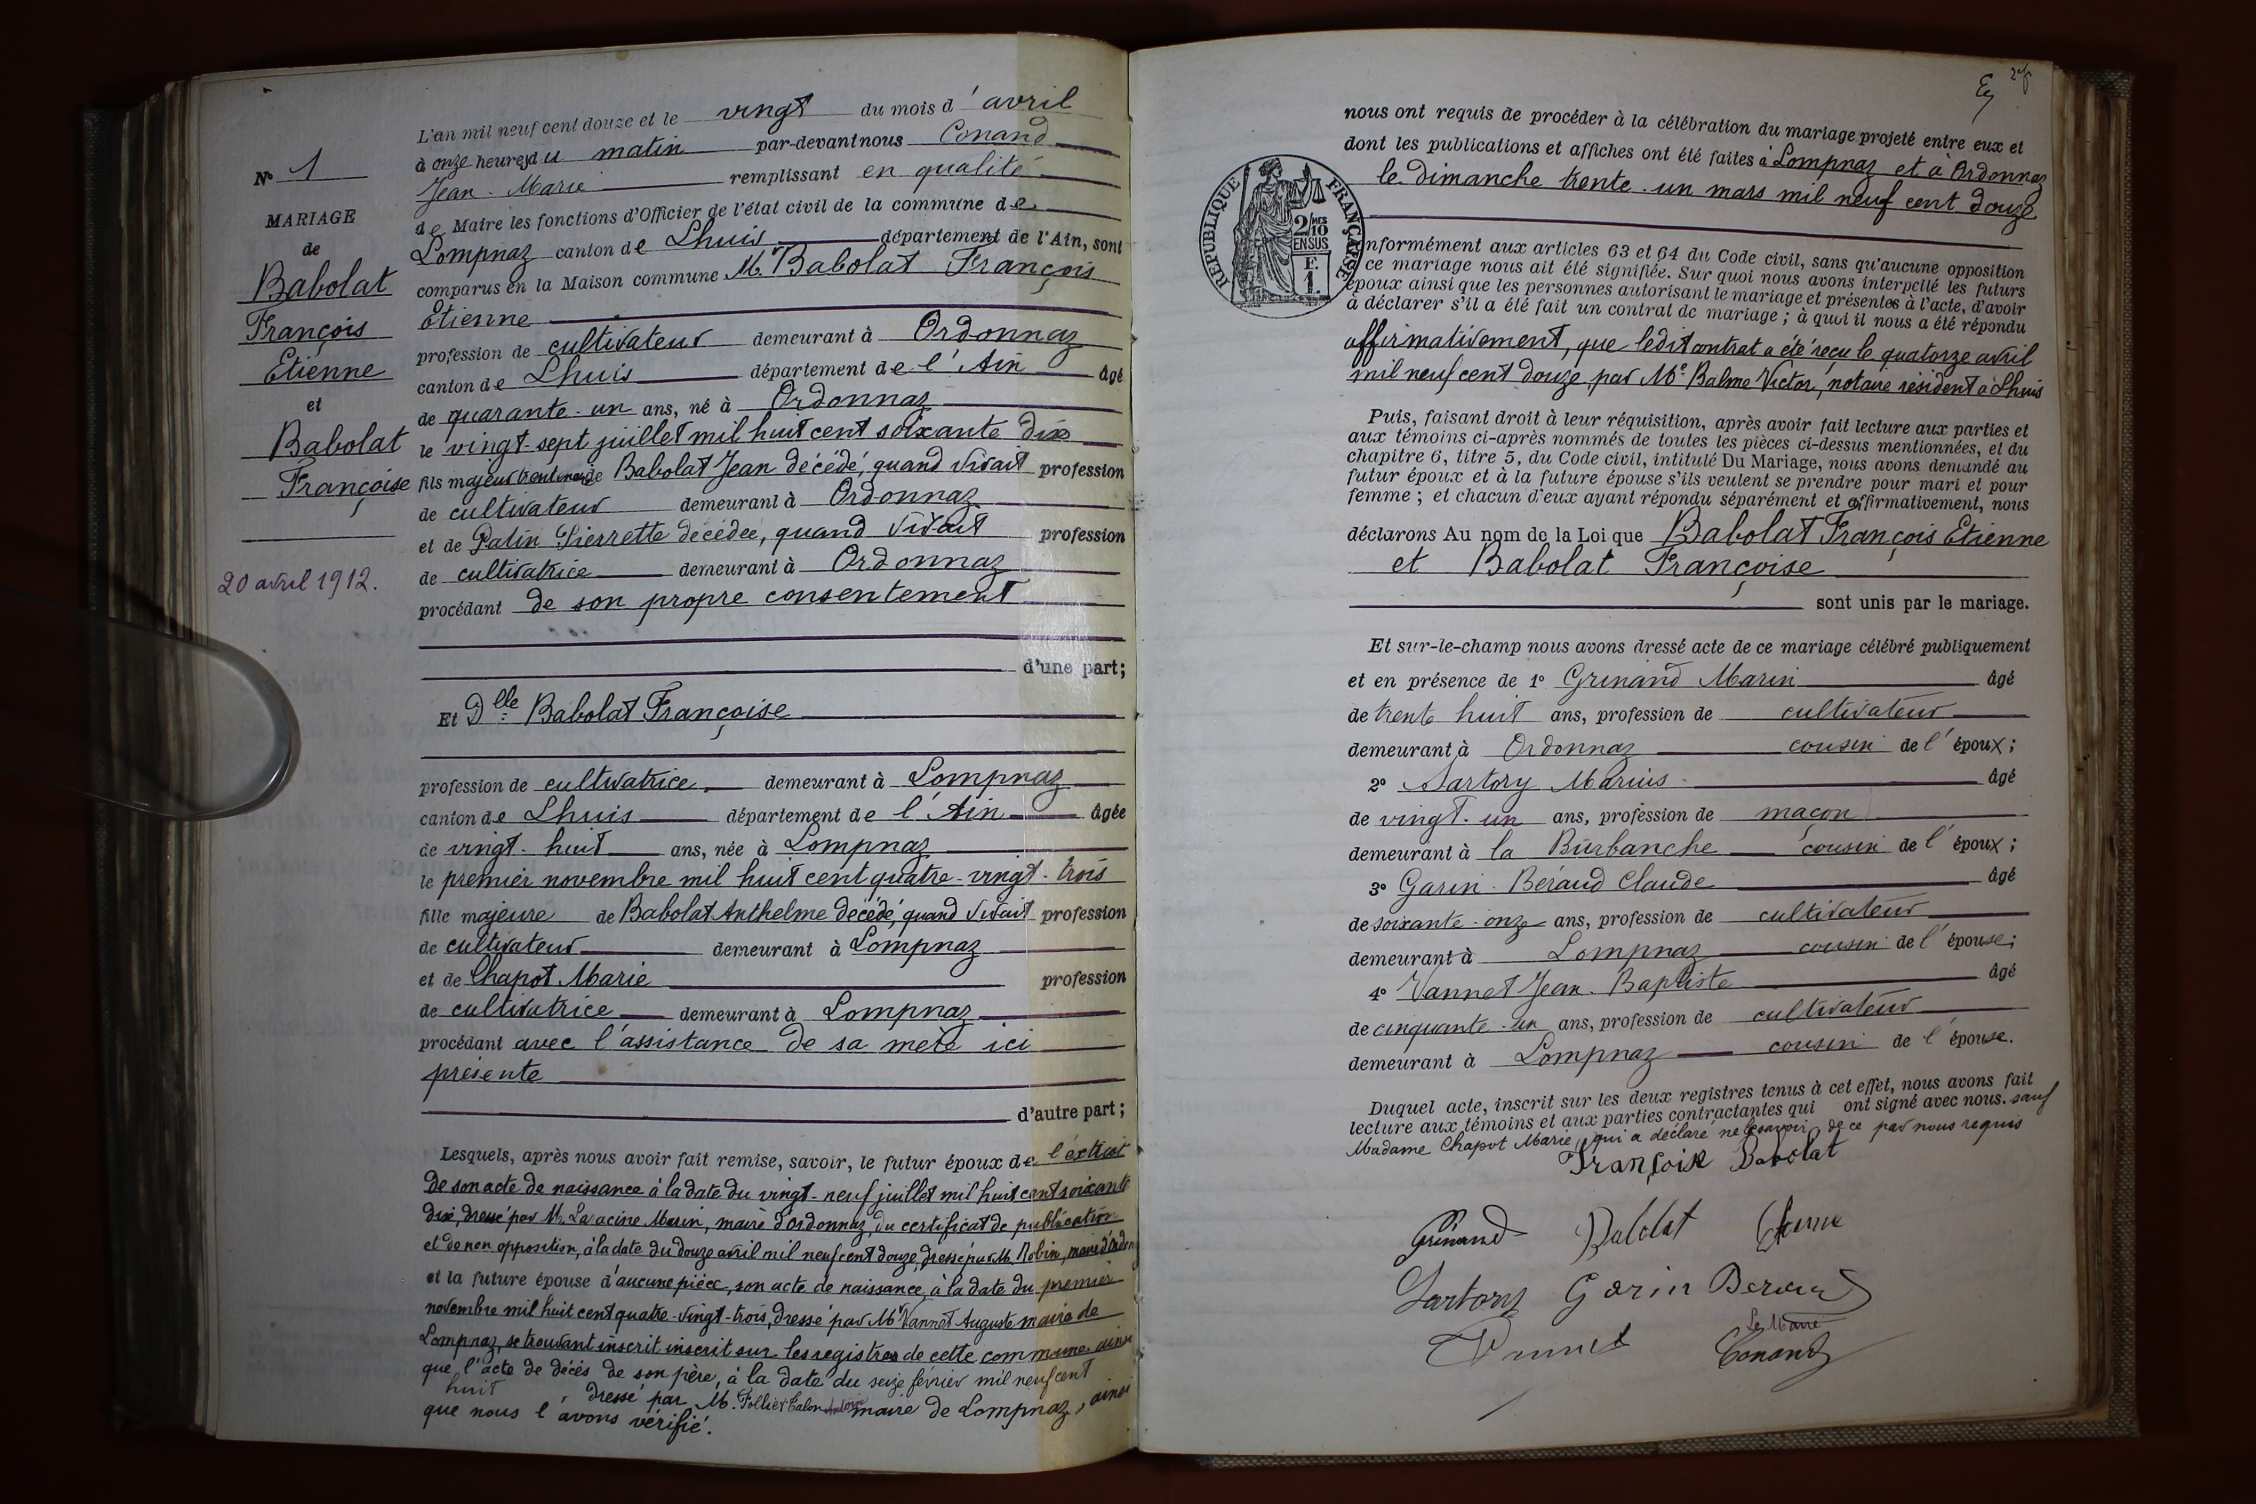 N° 1
MARIAGE
de
Babolat
François
Etienne
et
Babolat
Françoise
20 avril 1912.
L'an mil neuf cent douze et le vingt du mois d'avril
à onze heures du matin par-devant nous Conand
Jean-Marie remplissant en qualité
de Maire les fonctions d'Officier de l'état civil de la commune de
Lompnaz canton de Lhuis département de l'Ain, sont
comparus en la Maison commune M. Babolat François
Etienne
profession de cultivateur demeurant à Ordonnaz
canton de Lhuis département de l'Ain âgé
de quarante-un ans, né à Ordonnaz
le vingt-sept juillet mil huit cent soixante dix
fils majeur trentenaire de Babolat Jean décédé, quand vivait profession
de cultivateur demeurant à Ordonnaz
et de Patin Pierrette décédée, quand vivait profession
de cultivatrice demeurant à Ordonnaz
procédant de son propre consentement
d'une part;
Et Dlle Babolat Françoise
profession de cultivatrice demeurant à Lompnaz
canton de Lhuis département de l'Ain âgée
de vingt-huit ans, née à Lompnaz
le premier novembre mil huit cent quatre-vingt-trois
fille majeure de Babolat Anthelme décédé, quand vivait profession
de cultivateur demeurant à Lompnaz
et de Chapot Marie profession
de cultivatrice demeurant à Lompnaz
procédant avec l'assistance de sa mère ici
présente
d'autre part;
Lesquels, après nous avoir fait remise, savoir, le futur époux de l'extrait
de son acte de naissance à la date du vingt-neuf juillet mil huit cent soixante
dix, dressé par M. Laracine Marin, maire d'Ordonnaz, du certificat de publication
et de non opposition, à la date du douze avril mil neuf cent douze, dressé par M. Robin, maire d'Ordonnaz
et la future épouse d'aucune pièce, son acte de naissance, à la date du premier
novembre mil huit cent quatre-vingt-trois, dressé par M. Vannet Auguste maire de
Lompnaz, se trouvant inscrit inscrit sur les registres de cette commune, ainsi
que l'acte de décès de son père, à la date du seize février mil neuf cent
huit dressé par M. Follier Calon Antoine maire de Lompnaz, ainsi
que nous l'avons vérifié.
RÉPUBLIQUE FRANÇAISE
2/10
EN SUS
F.
1.
nous ont requis de procéder à la célébration du mariage projeté entre eux et
dont les publications et affiches ont été faites à Lompnaz et à Ordonnaz
le dimanche trente-un mars mil neuf cent douze
conformément aux articles 63 et 64 du Code civil, sans qu'aucune opposition
à ce mariage nous ait été signifiée. Sur quoi nous avons interpellé les futurs
époux ainsi que les personnes autorisant le mariage et présentes à l'acte, d'avoir
à déclarer s'il a été fait un contrat de mariage; à quoi il nous a été répondu
affirmativement, que ledit contrat a été reçu le quatorze avril
mil neuf cent douze par Me Balme Victor, notaire résident à Lhuis
Puis, faisant droit à leur réquisition, après avoir fait lecture aux parties et
aux témoins ci-après nommés de toutes les pièces ci-dessus mentionnées, et du
chapitre 6, titre 5, du Code civil, intitulé Du Mariage, nous avons demandé au
futur époux et à la future épouse s'ils veulent se prendre pour mari et pour
femme; et chacun d'eux ayant répondu séparément et affirmativement, nous
déclarons Au nom de la Loi que Babolat François Etienne
et Babolat Françoise
sont unis par le mariage.
Et sur-le-champ nous avons dressé acte de ce mariage célébré publiquement
et en présence de 1° Grinand Marin âgé
de trente huit ans, profession de cultivateur
demeurant à Ordonnaz cousin de l'époux;
2° Sartory Marius âgé
de vingt-un ans, profession de maçon
demeurant à la Burbanche cousin de l'époux;
3° Garin-Beraud Claude âgé
de soixante-onze ans, profession de cultivateur
demeurant à Lompnaz cousin de l'épouse;
4° Vannet Jean-Baptiste âgé
de cinquante-un ans, profession de cultivateur
demeurant à Lompnaz cousin de l'épouse.
Duquel acte, inscrit sur les deux registres tenus à cet effet, nous avons fait
lecture aux témoins et aux parties contractantes qui ont signé avec nous. sauf
Madame Chapot Marie, qui a déclaré ne le savoir de ce par nous requis
Françoise Babolat
Grinand Babolat Etienne
Sartory Garin Beraud
Vannet
Le Maire
Conand